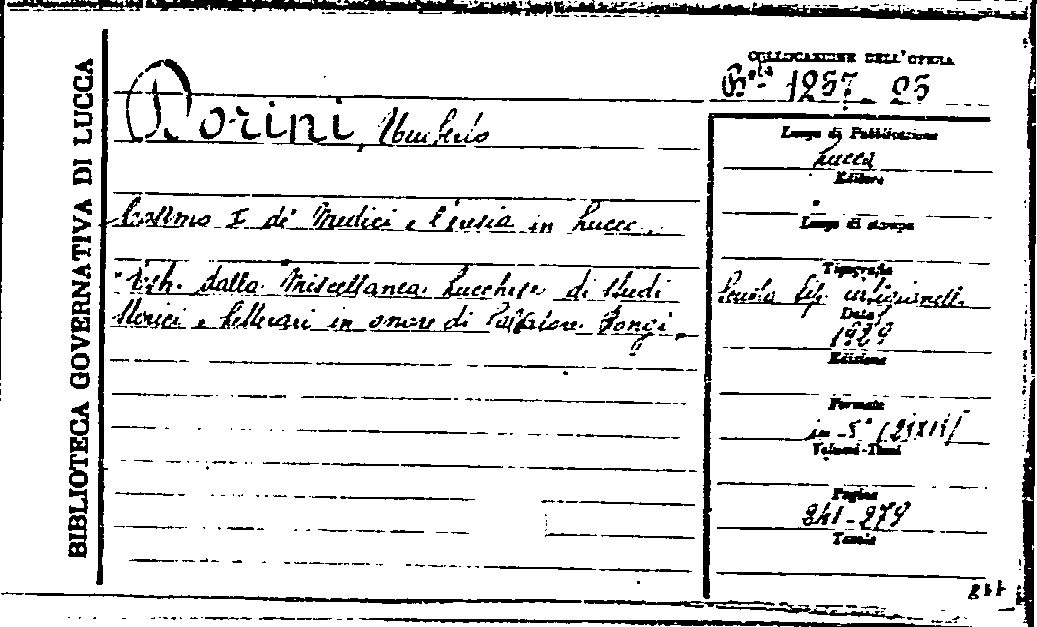 BIBLIOTECA GOVERNATIVA DI LUCCA
COLLOCAZIONE DELL'OPERA
Bta 1257. 25
Dorini, Umberto
Cosimo I de' Medici e l'eresia in Lucca.
Estr. dalla Miscellanea Lucchese di Studi
storici e letterari in onore di Salvatore Bongi.
Luogo di Pubblicazione
Lucca
Editore
Luogo di stampa
Tipografia
Scuola Tip. Artigianelli
Data
1929
Edizione
Formato
in-5°
Volumi-Tomi
Pagine
241-279
Tavole